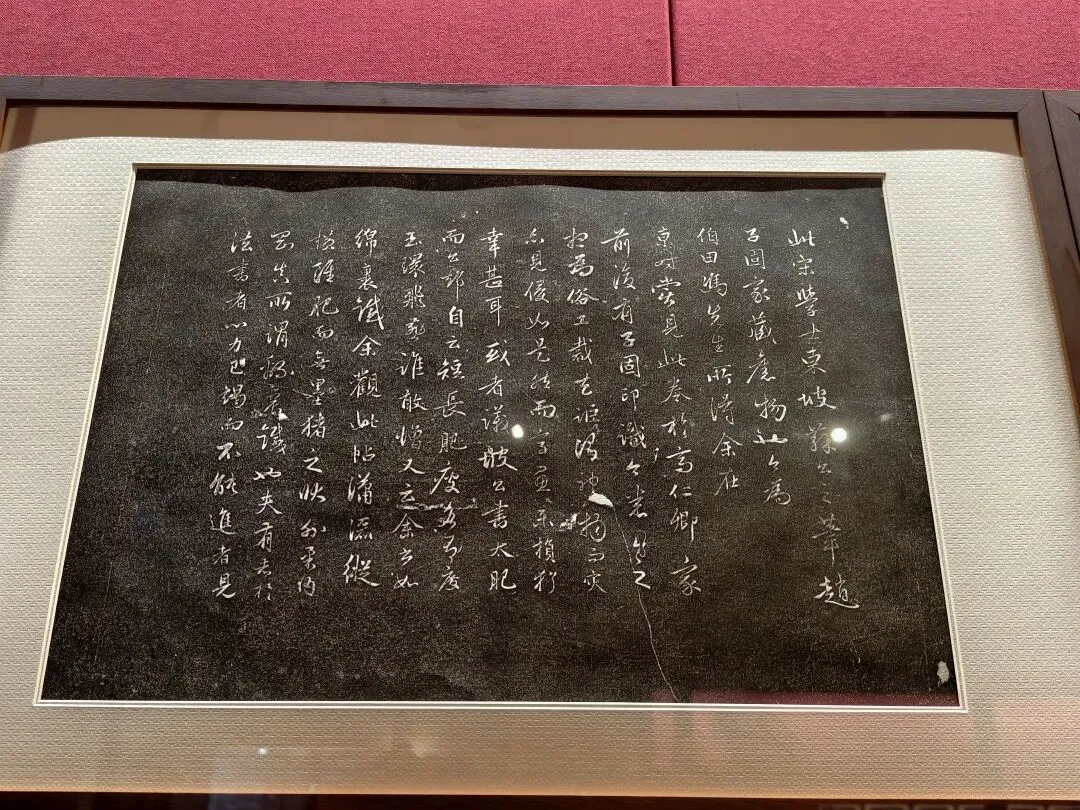 此宋學士東坡蘇公之筆趙
子固家藏舊物也今為
伯田馮先生所得余在
京時嘗見此卷於高仁卿家
前後有子固印識今悉亡之
想為俗工裁去詎謂神物而災
亦見侵如是然而字畫未損猶
幸甚耳或者議坡公書太肥
而公却自云短長肥瘦各有度
玉環飛燕誰敢憎又云余書如
綿裏鐵余觀此帖瀟灑縱
橫雖肥而無墨豬之狀外柔內
剛真所謂綿裏鐵也夫有志於
法書者心力已竭而不能進者見